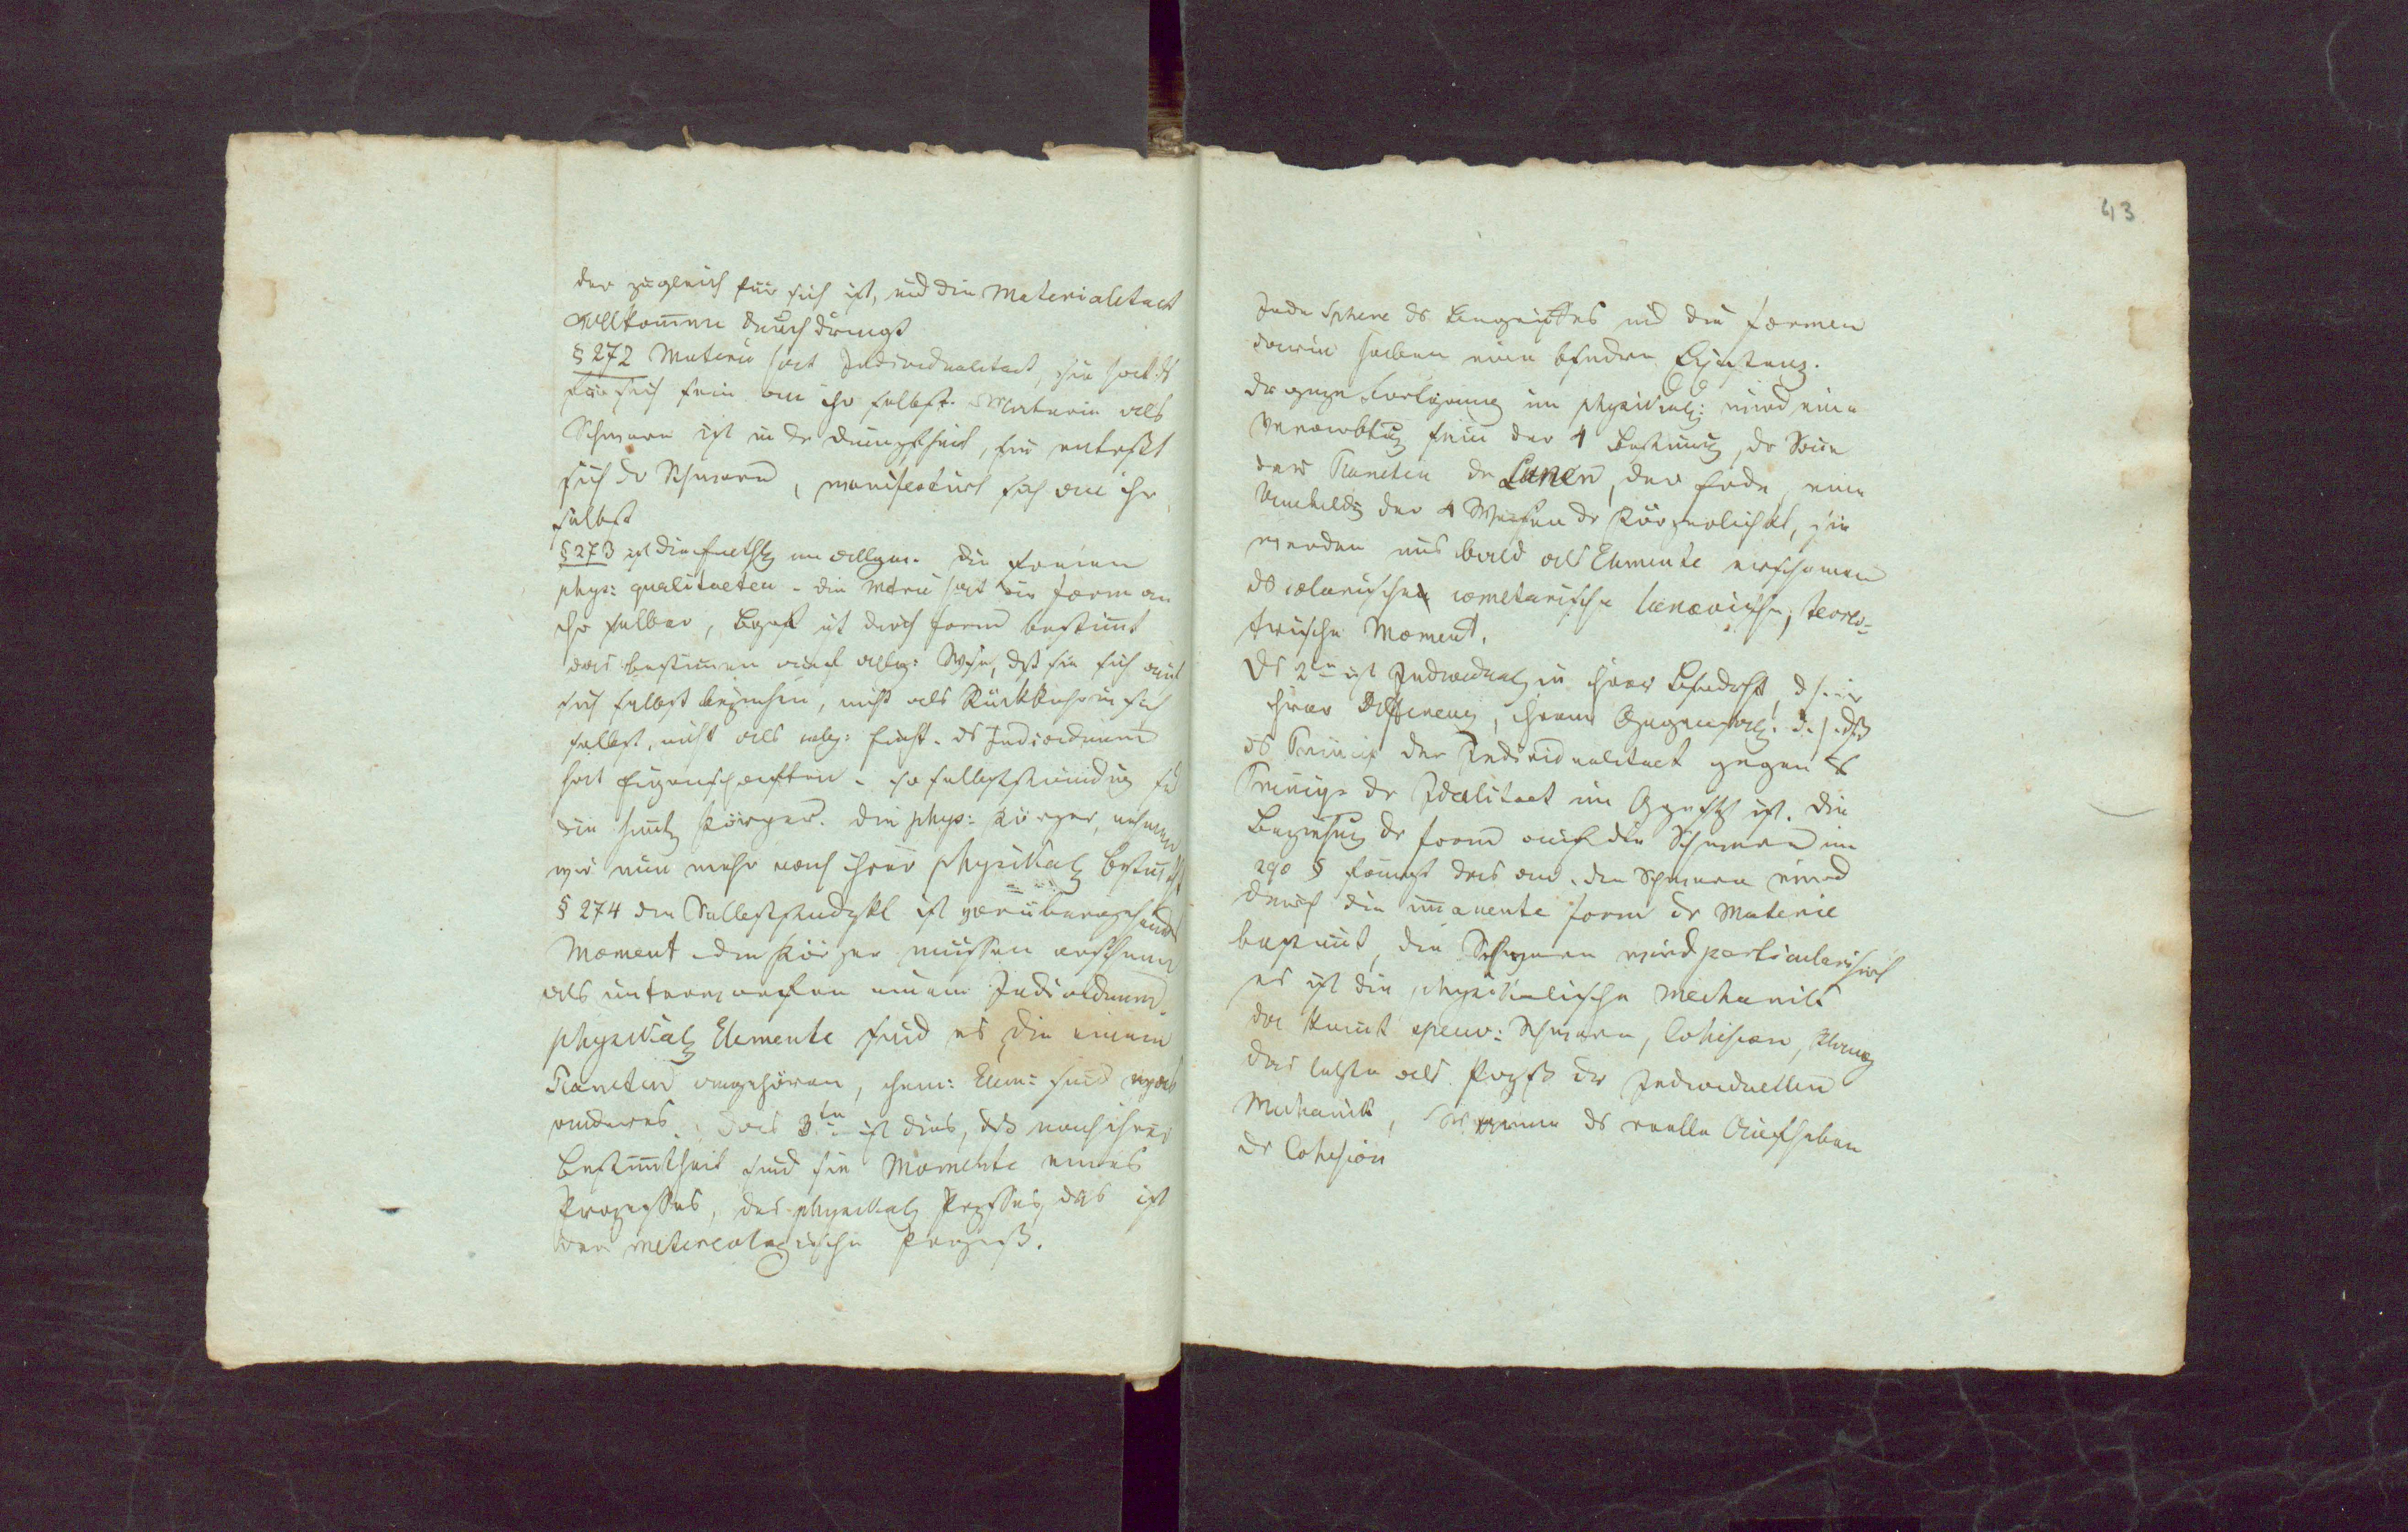 der zugleich für sich ist, und die Materialitaet
vollkommen durchdringt
§ 272 Materie hat Individualitaet, sie hat ds
für sich sein an ihr selbst. Materie als
Schwere ist in dr Dumpfheit, sie entreßt
sich dr Schwere, manifestirt sich an ihr
selbst
§ 273 ist die Einthlg im allgm. Die freien
phys: qualitaeten - die Mterie hat die Form an
ihr selber, ist durch Form bestimt
das bestimmen auf allg: Wse, dß sie sich auf
sich selbst beziehen, nicht als Rückkehr in sich
selbst, nicht als Einht. ds Individuum
hat Eigenschaften - so selbstständig sd
die Körper. die phys: Körper, nehmen
wir nun mehr nach ihrer physikal Bestimtht
§ 274 die Selbstständgkt ist vorübergehends
Moment die Körper müssen erscheinen
als unterworfen einem Individuum.
physikal Elemente sind es die einem
Planeten angehören, chem: Elem: sind etwas
anderes. das 3te ist dies, dß nach ihrer
Bestimtheit sind sie Momente eines
Prozesses, des physikal Przsses, das ist
der metereologische Prozeß.
43
Jede Sphere ds Begriffes und die Formen
darin haben eine bsndre Existenz.
dr ganze Fortgang im physikal: wird eine
Verwdlg sein der 4 Bestimg, dr Sonne
der Planeten dr Lunen, der Erde, eine
der 4 Weisen dr Körperlichkt, sie
werden uns bald als Elemente erscheinen
ds solarische cometarische lunarische,
trische Moment.
Ds 2te ist Individual in ihrer Bsndrht, d. h. in
ihrer Differenz, ihrem Gegensatz. d. h. dß
ds Princip der Individualitaet gegen ds
Princip dr Idealitaet im Ggnstz ist. Die
Beziehung dr Form auf die Schwere im
290 § fängt das an. die Schwere wird
durch die imanente Form dr Materie
bestimt, die Schwere wird particularisirt
es ist die physikalische Mechanik
da komt specif: Schwere, Cohesion, Klang
das letzte als Przß der Individuellen
Mechanik, Wärme ds reelle Aufheben
dr Cohesion